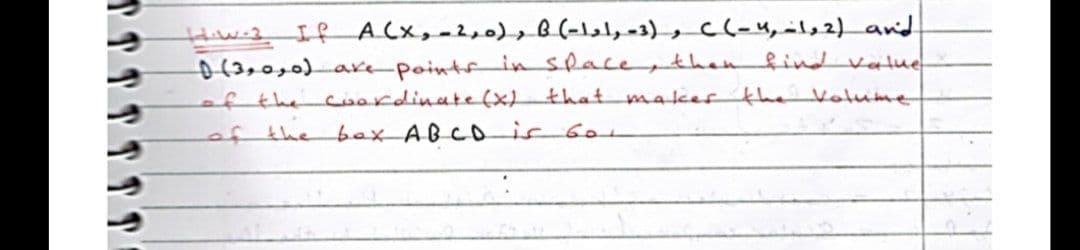 H.w.2 If A(x,-2,0), B(-1,1,-3), C(-4,-1,2) and
D(3,0,0) are points in space, then find value
of the coordinate (x) that makes the volume
of the box ABCD is 60.